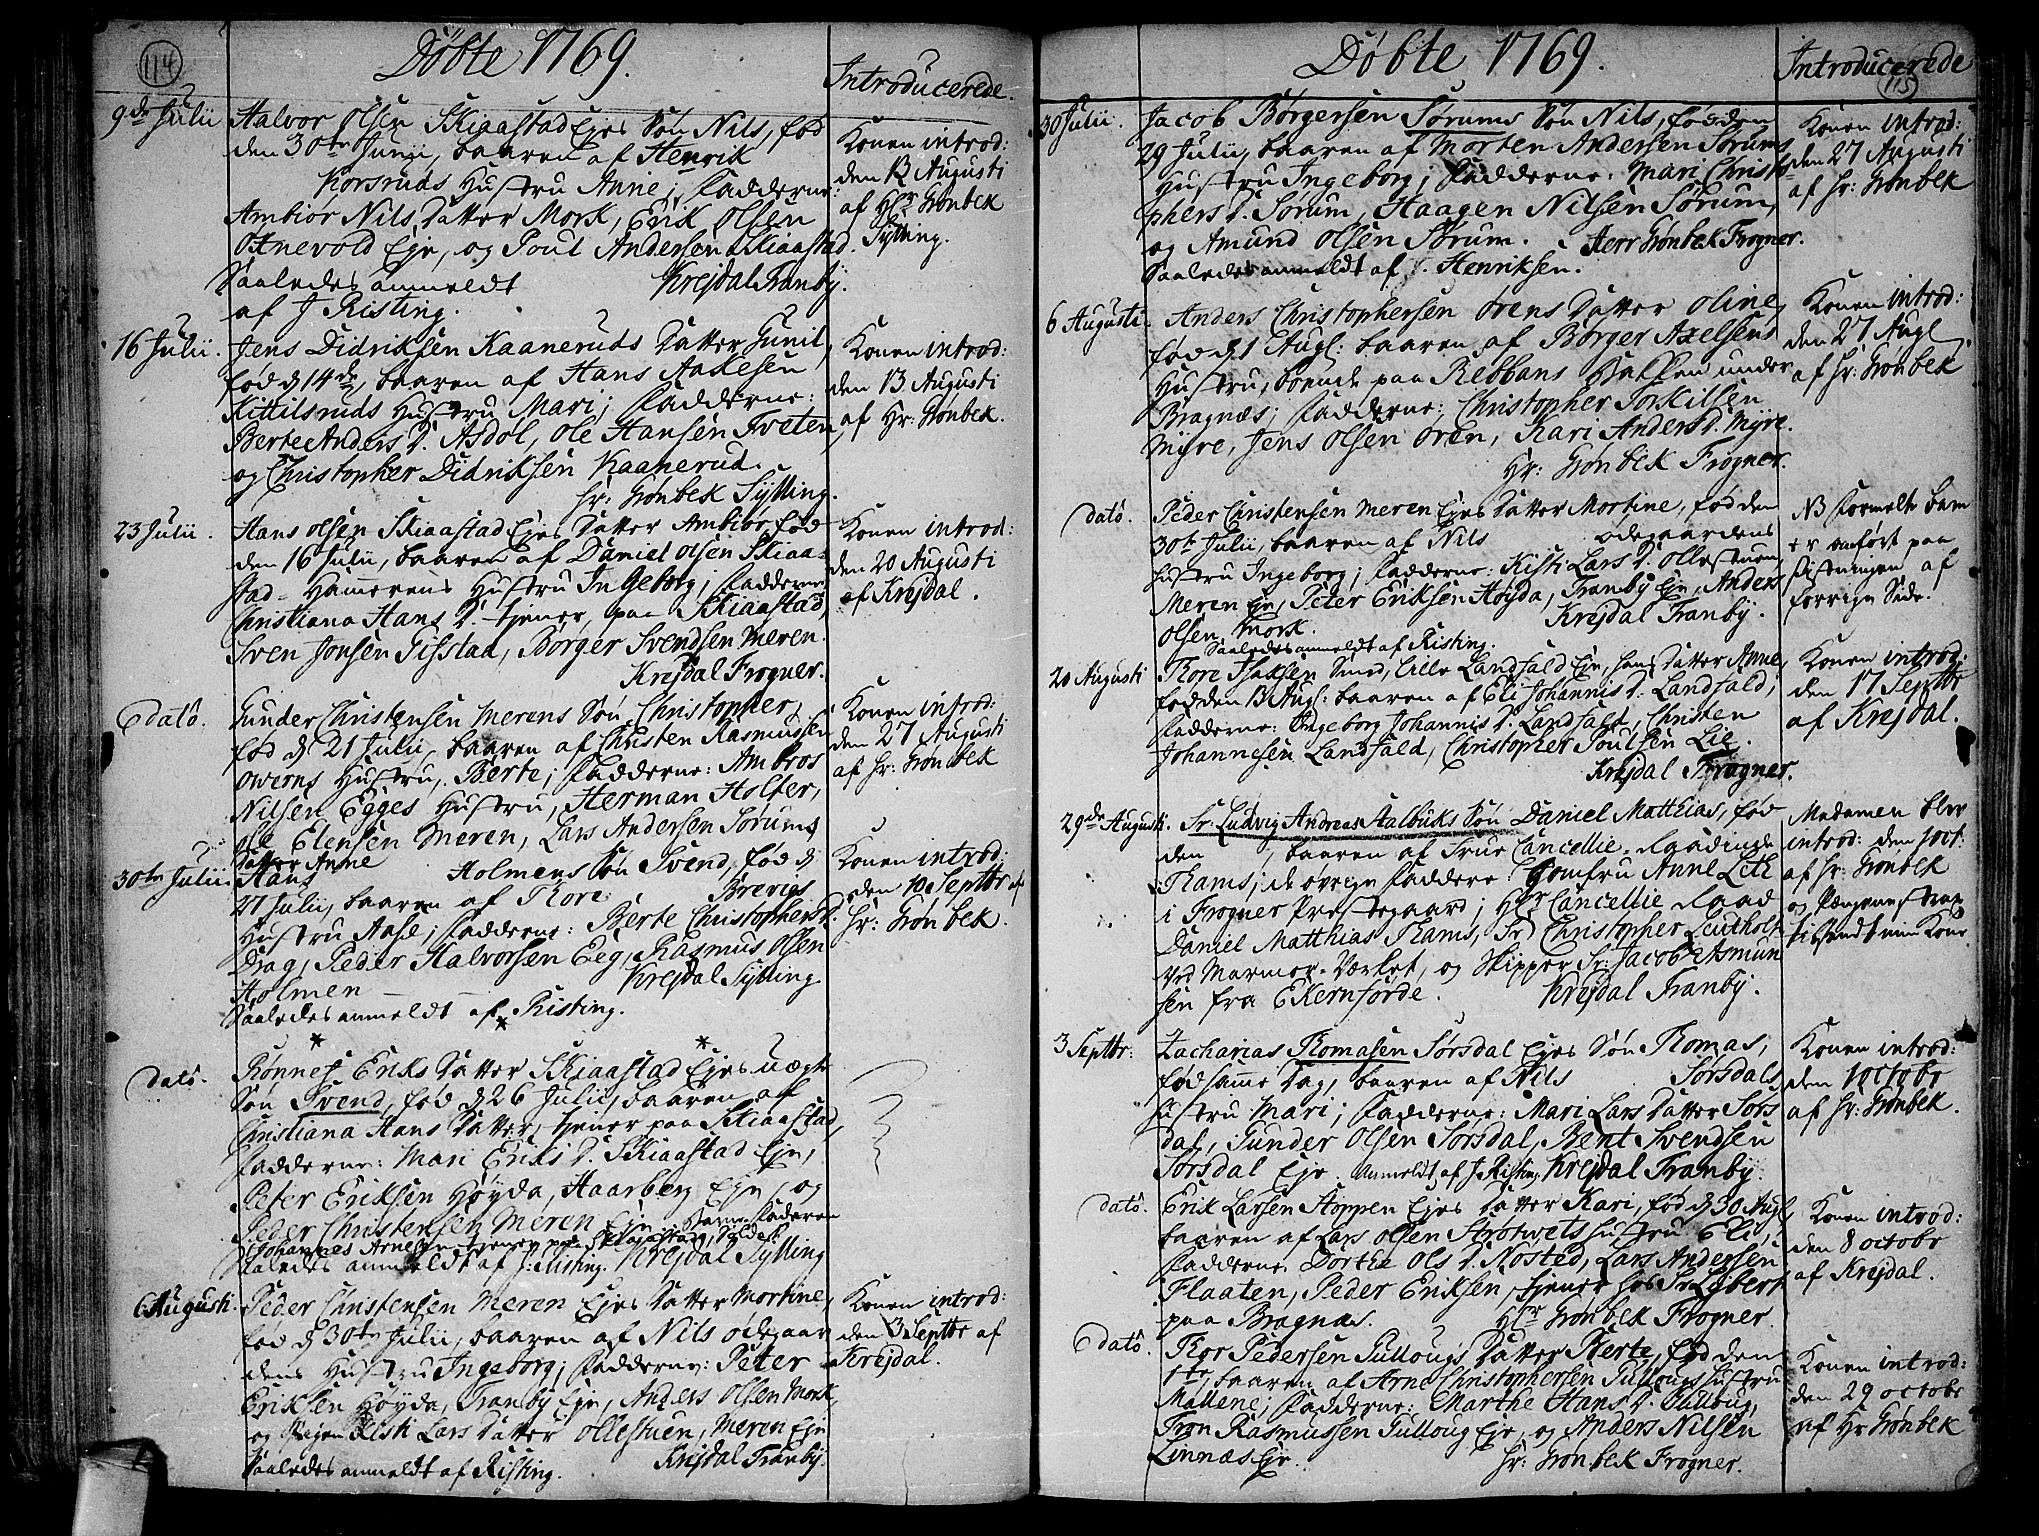 114
Döbte 1769.
Introducerede.
9de Julii
Halvor Olsen Skiaastad Ejes Søn Nils, fød
den 30te Junii, baaren af Henrik
Korsruds Hustru Anne; Fadderne:
Ambiör Nils Datter Mork, Erik Olsen
Eje, og Poul Andersen Skiaastad.
Saaledes anmeldt Krejdal Tranby.
af J Risting.
Konen introd:
den 13 Augusti
af Hr Grönbek
Sylling.
16 Julii.
Jens Didriksen Kaaneruds Datter Gunil,
fød d 14de, baaren af Hans Aakesen
Kittilsruds Hustru Mari; Fadderne:
Berte Anders D. Asdöl, Ole Hansen Tveten,
og Christopher Didriksen Kaanerud.
Hr: Grönbek Sylling.
Konen introd:
den 13 Augusti
af Hr: Grönbek.
23 Julii.
Hans Olsen Skiaastad Ejes Datter Ambiör fød
den 16 Julii, baaren af Daniel Olsen Skiaa-
stad-Hamerens Hustru Ingeborg; Fadderne:
Christiana Hans D. tjener paa Skiaastad,
Sven Jonsen Gisstad, Börger Svendsen Meren.
Krejdal Frogner.
Konen introd:
den 20 Augusti
af Krejdal.
dato.
Gunder Christensen Merens Søn Christopher,
fød d 21 Julii, baaren af Christen Rasmussen
Owerns Hustru, Berte; Fadderne: Ambros
Nilsen Egges Hustru, Herman Holter,
Ole Elensen Meren, Lars Andersen Sörums
Datter Anne
Konen introd:
den 27 Augusti
af Hr: Grönbek
30te Julii.
Hans Holmens Søn Svend, fød d
27 Julii, baaren af Thore Brevigs
Hustru Aase; Fadderne: Berte Christophers D.
Drag, Peder Halvorsen Eeg, Rasmus Olsen
Holmen Krejdal Sylling
Saaledes anmeldt af Risting.
Konen introd:
den 10 Septbr af
Hr: Grönbek.
dato.
Rønnes Eriks Datter Skiaastad Ejes uægte
Søn Svend, fød d 26 Julii, baaren af
Christiana Hans Datter, tjener paa Skiaastad,
Fadderne: Mari Eriks D. Skiaastad Eje,
Peter Eriksen Höyda, Haarberg Eje, og
Peder Christensen Meren Eje. Barne Faderen
Johannes Arnesen tjener paa Skiaastad, Soldat.
Saaledes anmeldt af J: Risting. Krejdal Sylling
6 Augusti.
Peder Christensen Meren Ejes Datter Mortine,
fød d 30te Julii, baaren af Nils Ødegaar
dens Hustru Ingeborg; Fadderne: Peter
Eriksen Höyda, Tranby Eje, Anders Olsen Mork,
og Pigen Kisti Lars Datter Ollestuen, Meren Eje
Saaledes anmeldt af Risting. Krejdal Tranby.
Konen introd:
den 3 Septbr af
Krejdal.
115
Döbte 1769.
Introducerede
30 Julii.
Jacob Börgersen Sörums Søn Nils, fød den
29 Julii, baaren af Morten Andersen Sörums
Hustru Ingeborg; Fadderne: Mari Christo-
phers D. Sörum, Haagen Nilsen Sörum,
og Amund Olsen Sörum. Herr Grönbek Frogner.
Saaledes anmeldt af Henriksen.
Konen introd:
den 27 Augusti
af Hr: Grönbek
6 Augusti.
Anders Christophersen Örens Datter Oline,
fød d 1 Aug: baaren af Börger Axelsens
Hustru, boende paa Rebbans Bakken under
Bragnæs; Fadderne: Christopher Torkilsen
Myre, Jens Olsen Ören, Kari Anders D. Myre.
Hr: Grönbek Frogner.
Konen introd:
den 27 Aug
af Hr: Grönbek
dato.
Peder Christensen Meren Ejes Datter Mortine, fød den
30te Julii, baaren af Nils Ødegaardens
Hustru Ingeborg; Fadderne: Kisti Lars D. Ollestuen,
Meren Eje, Peter Eriksen Höyda, Tranby Eje, Anders
Olsen Mork. Krejdal Tranby.
Saaledes anmeldt af Risting
NB Formelte barn
er anført paa
Slutningen af
forrige Side.
20 Augusti
Tore Isaksen Smed, Lille Landfald Eje, hans Datter Anne,
fød den 13 Aug: baaren af Eli Johannis D. Landfald;
Fadderne: Ingeborg Johannis D. Landfald, Christen
Johannesen Landfald, Christopher Poulsen Lie.
Krejdal Frogner.
Konen introd.
den 17 Septbr
af Krejdal.
29de Augusti.
Sr. Ludvig Andreas Stalbuks Søn Daniel Matthias, fød
den , baaren af Frue Cancellie-Raadinde
Thams; de øvrige Faddere: Jomfru Anne Leth
i Frogner Præstegaard; Hr Cancellie Raad
Daniel Matthias Thams, Sr Christopher Leutholf
ved Marmor-Værket, og Skipper Sr: Jacob Asmun
sen fra Ekernförde. Krejdal Tranby.
Madamen blev
introd: den 1 oct:
af Hr: Grönbek
og Pengene strax
tilsendt min Kone
3 Septbr:
Zacharias Thomasen Sörsdal Ejes Søn Thomas,
fød samme Dag, baaren af Nils Sörsdals
Hustru Mari; Fadderne: Mari Lars Datter Sörs
dal, Gunder Olsen Sörsdal, Bent Svendsen
Sörsdal Eje. Anmeldt af J. Risting. Krejdal Tranby.
Konen introd:
den 1 Octobr
af Hr: Grönbek.
dato.
Erik Larsen Stoppen Ejes Datter Kari, fød d 30 Aug,
baaren af Lars Olsen Strötwets Hustru Eli;
Fadderne: Dorthe Ols D. Rosted, Lars Andersen
Flaaten, Peder Eriksen, tjener hos Sr: Lybert
paa Bragnæs. Hr Grönbek Frogner.
Konen introd:
den 8 Octobr
af Krejdal.
dato.
Thor Pedersen Gullougs Datter Berte, fød den
1te, baaren af Arne Christophersen Gullougs Hustru
Mallene; Fadderne: Marthe Hans D. Gulloug,
Tron Rasmussen Gulloug Eje, og Anders Nilsen
Linnæs Eje. Hr: Grönbek Frogner.
Konen introd:
den 29 Octobr
af Hr Grönbek